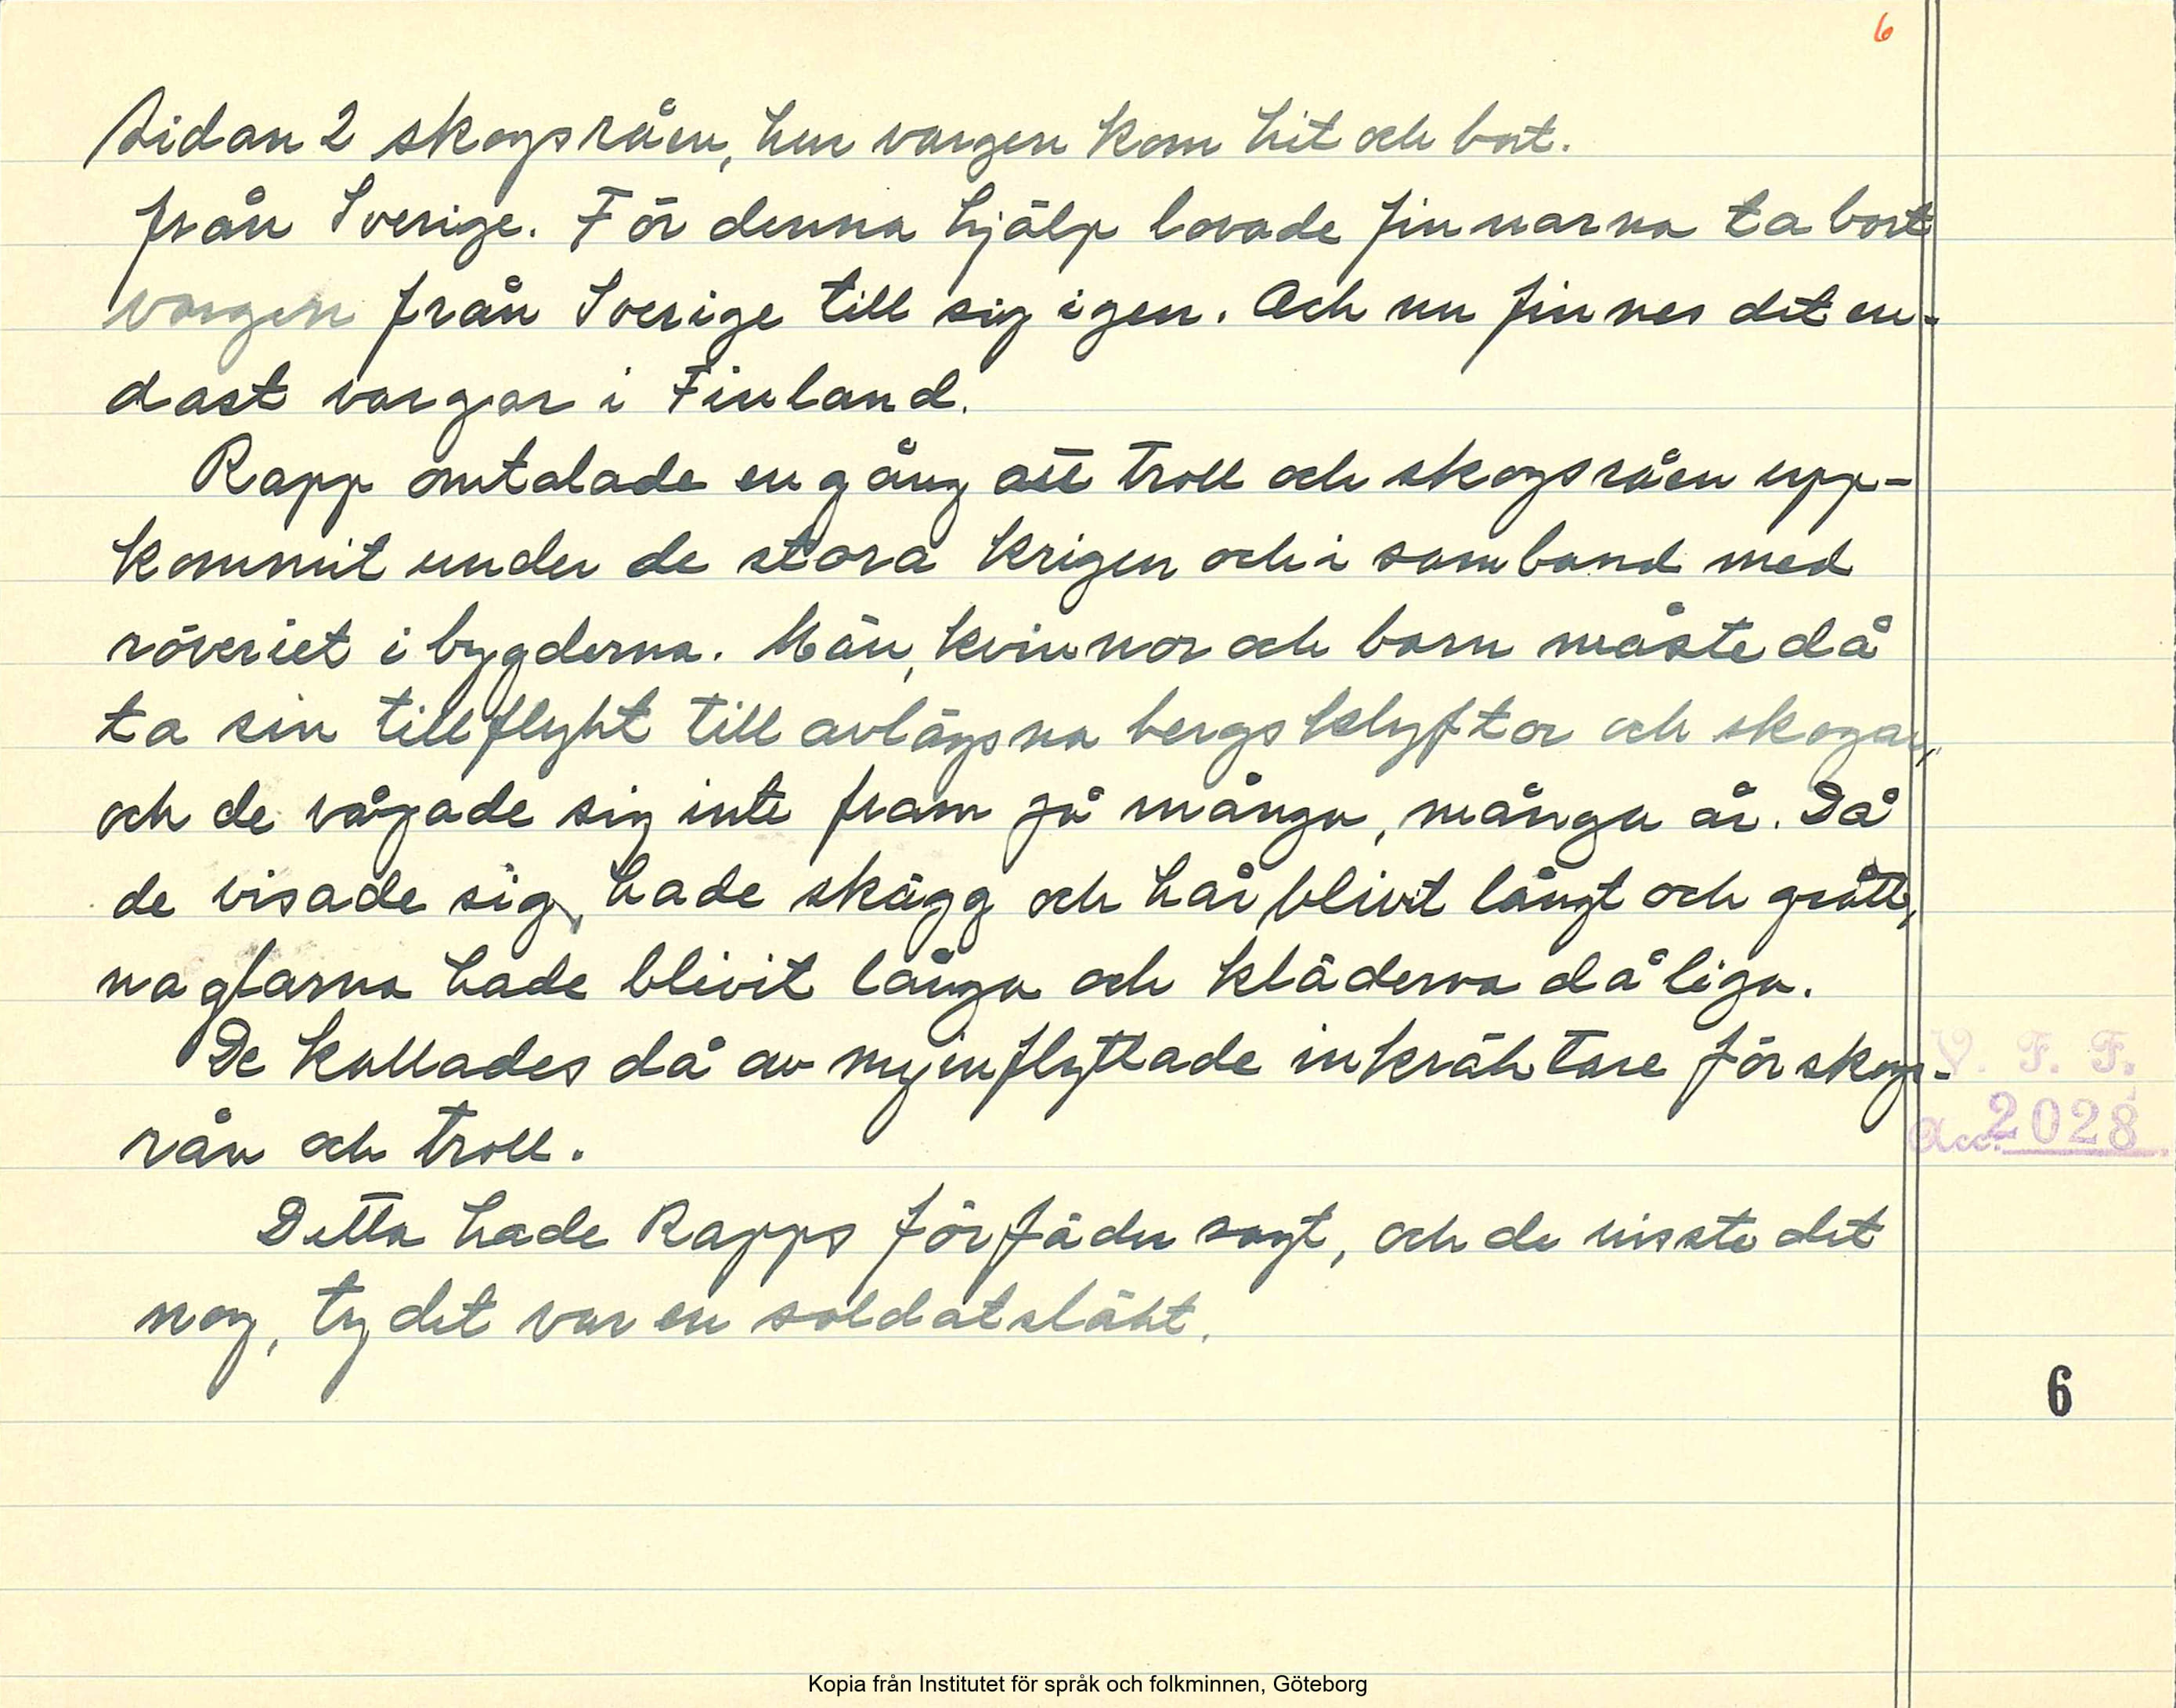 6
Sidan 2 skogsråen, hur vargen kom hit och bort.
från Sverige. För denna hjälp lovade finnarna ta bort
vargen från Sverige till sig igen. Och nu finnes det en-
dast vargar i Finland.
Rapp omtalade en gång att troll och skogsråen upp-
kommit under de stora krigen och i samband med
röveriet i bygderna. Män, kvinnor och barn måste då
ta sin tillflykt till avlägsna bergsklyftor och skogar,
och de vågade sig inte fram på många, många år. Då
de visade sig, hade skägg och hår blivit långt och grått,
naglarna hade blivit långa och kläderna dåliga.
De kallades då av nyinflyttade inkräktare för skogs-
rån och troll.
V. F. F.
Acc. 2028
Detta hade Rapps förfäder sagt, och de visste det
nog, ty det var en soldatsläkt.
6
Kopia från Institutet för språk och folkminnen, Göteborg